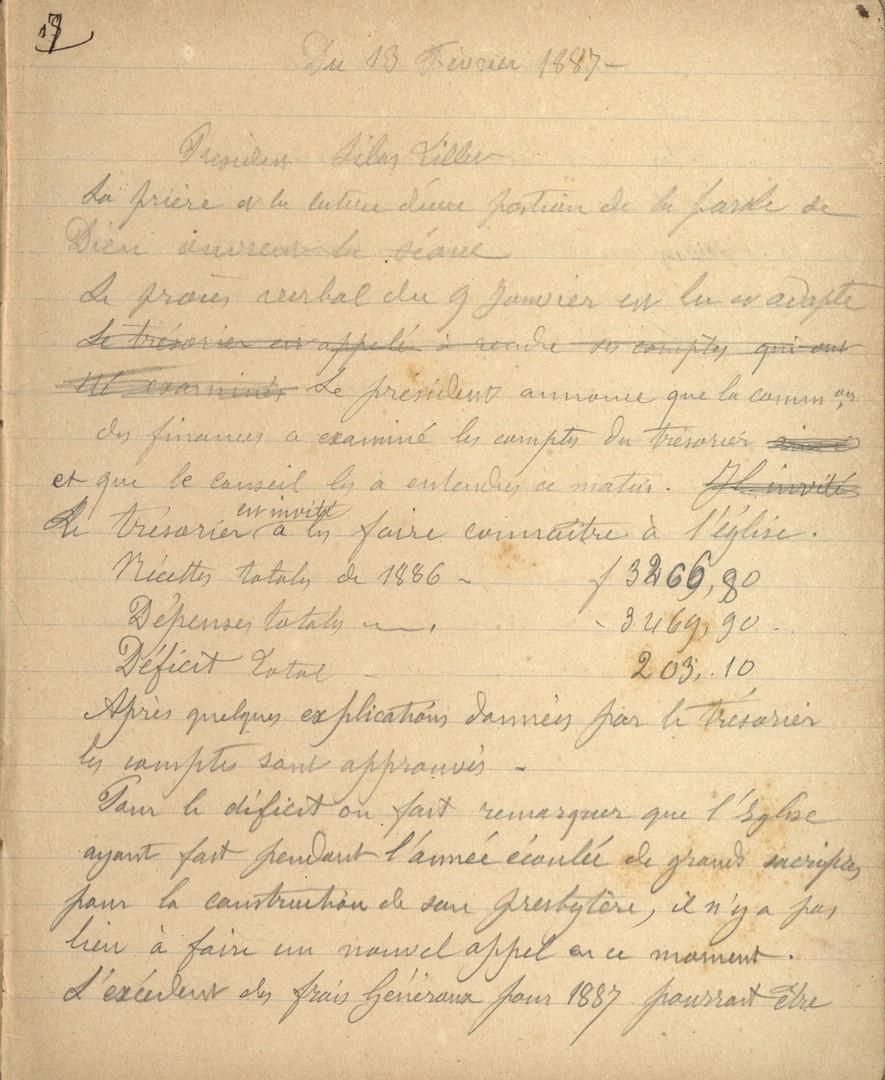 17
Du 13 Février 1887 –
Président Silas
La prière et la lecture d'une portion de la parole de
Dieu ouvrent la séance
Le procès verbal du 9 Janvier est lu et adopté
Le trésorier est appelé à rendre ses comptes qui ont
été examinés Le président annonce que la comm.on
des finances a examiné les comptes du trésorier
et que le conseil les a entendus ce matin. Il invité
est invité
Le trésorier à les faire connaître à l'église.
Récettes totales de 1886 – f 3266,80
Dépenses totales – . – 3469,90
Déficit total 203,.10
Après quelques explications données par le trésorier
les comptes sont approuvés –
Pour le déficit on fait remarquer que l'Eglise
ayant fait pendant l'année écoulée de grands sacrifices
pour la construction de son presbytère, il n'y a pas
lieu à faire un nouvel appel en ce moment.
L'excédent des frais Généraux pour 1887 pourrait être